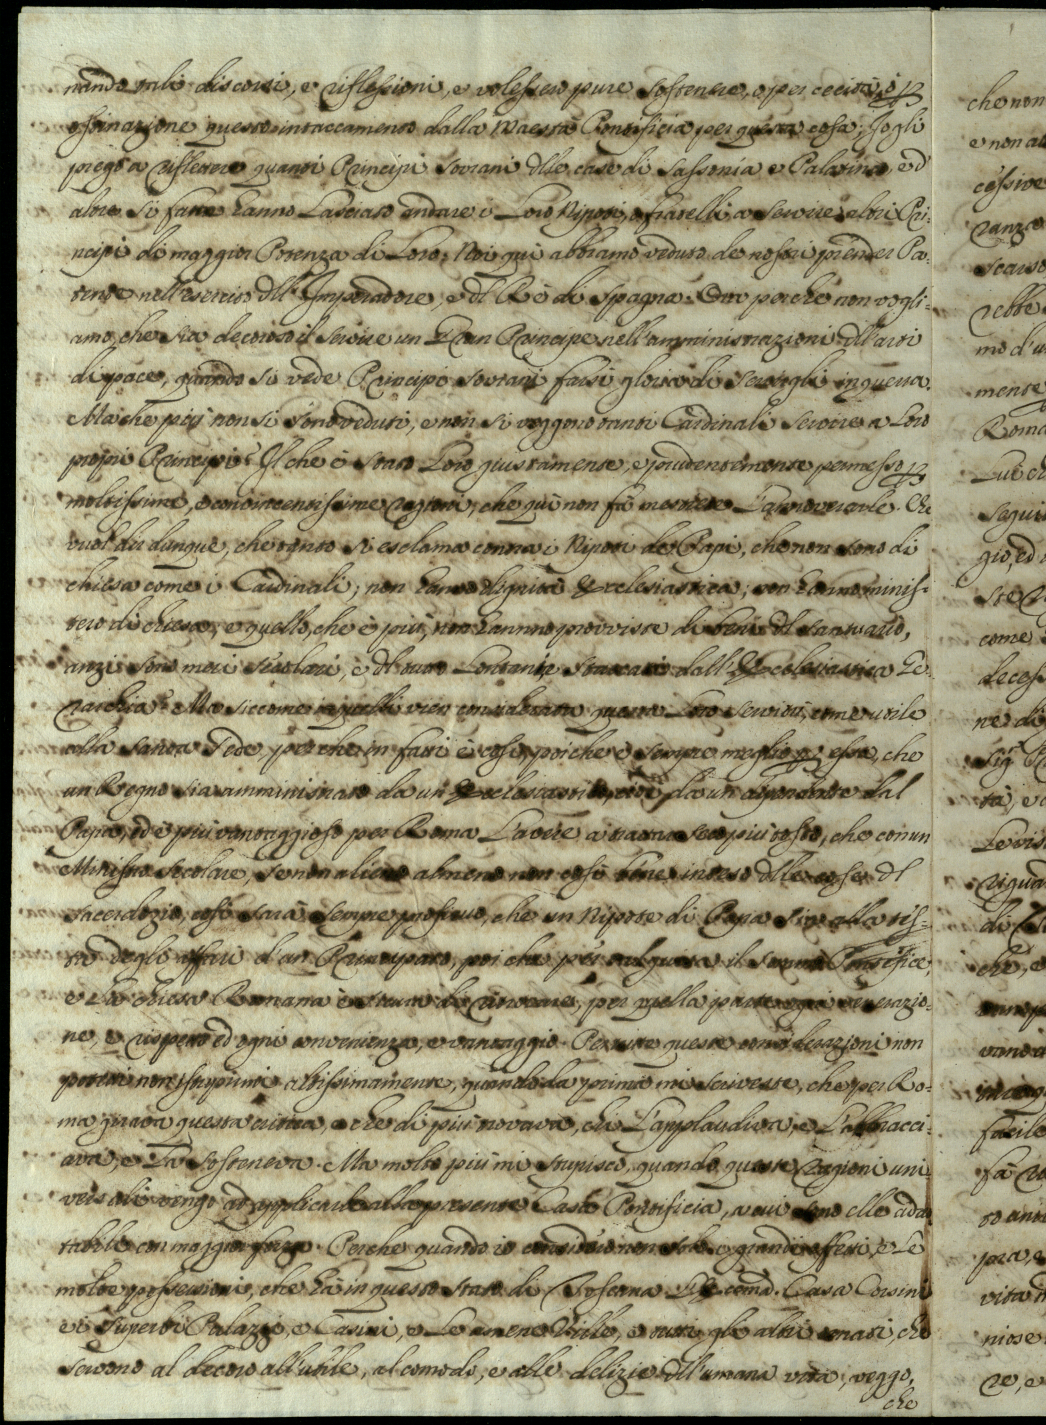 nando tali discorsi, e riflessioni, e volessero pure sostenere, o per cecità, o p
ostinazione questo intaccamento dalla Maestà Pontificia per questa cosa; Io gli
prego a riflettere quanti Principi sovrani dlle case di Sassonia e Palatina, ed
altre si fatte hanno Lasciato andare i Loro Nipoti, o fratelli a servire altri Pri-
ncipi di maggior Potenza di Loro; Noi qui abbiamo veduto de nostri prender Pa-
tente nell'esercito dll'Imperadore, e dl Rè di Spagna. Ora perche non vogli-
amo, che sia decoroso il servire un Gran Principe nell'amministrazioni dll'arti
di pace, quando si vede Principi sovrani farsi gloria di servirgli in guerra.
Ma che più non si sono veduti, e non si veggono tanti Cardinali servire a Loro
propri Principi? Il che è stato Loro giustamente, e prudentemente permesso p
moltissime, e convincentissime ragioni, che quì non fà mestiere L'annoverarle. Che
vuol dir dunque, che tanto si esclama contra i Nipoti de Papi, che non sono di
chiesa come i Cardinali; non hanno dignità Ecclesiastica; non hanno minis-
tero di chiesa, e quello, che è più, non hanno provviste di beni dl santuario,
anzi sono meri secolari, e dl tutto Lontani, e staccati dall'Ecclesiastica Ge-
rarchia? Ma siccome in quelli vien considerata questa Loro servitù, come utile
alla Santa Sede, perche in fatti è così, poiche è sempre meglio p essa, che
un Regno sia amministrato da un Ecclesiastico, cioè da un dipendente dal
Papa, ed è più vantaggioso per Roma L'avere a trattar seco più tosto, che con un
Ministro secolare, se non alieno almeno non così bene inteso dlle cose dl
sacerdozio, così sarà sempre proficuo, che un Nipote di Papa sia alla tes-
ta degli affari d'un Principato, poi che per tal guisa il sommo Pontefice,
e La chiesa Romana è sicura di riscuotere, per quella parte ogni venerazio-
ne, e rispetto ed ogni convenienza, e vantaggio. Per tutte queste considerazioni non
potei non istupirmi altissimamente, quando da prima mi scriveste, che per Ro-
ma girava questa critica, e che di più trovava, chi L'applaudiva, e L'abbracci-
ava, e La sosteneva. Ma molto più mi stupisco, quando queste ragioni uni-
versali vengo ad applicarle alla presente Casa Pontificia, a cui sono elle adat-
tabili con maggior forza. Perche quando io considero non solo i grandi effetti, e Le
molte possessioni, che hà in questo stato di Toscana L'Eccma. Casa Corsini
e i superbi Palazzi, e Casini, e Le amene Ville, e tutti gli altri comodi, che
servono al decoro all'utile, al comodo, e alle delizie dll'umana vita, veggo,
che